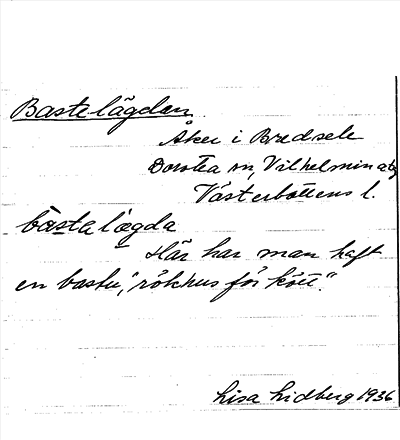 Bastelägdan
Åker i Bredsele
Dorotea sn, Vilhelmina
Västerbottens l.
bastalægda
Här har man haft
en bastu, "rökhus för kött".
Lisa Lidberg 1936